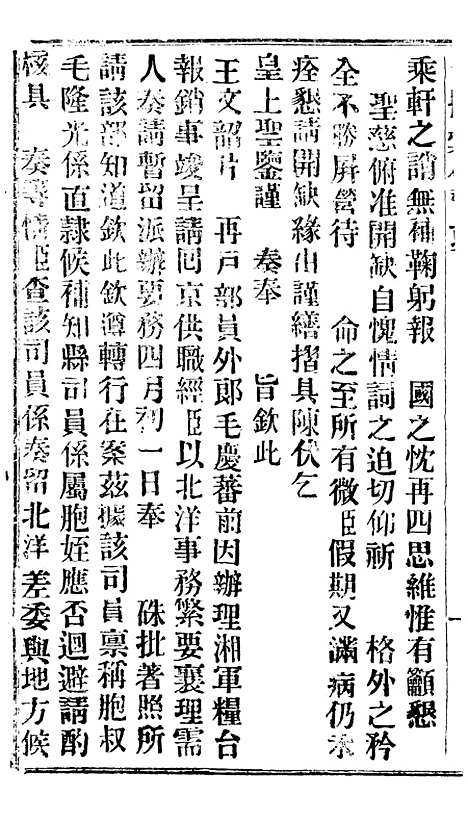 乘軒之誚無補鞠躬報　國之忱再四思維惟有籲懇
聖慈俯准開缺自愧情詞之迫切仰祈　格外之矜
全不勝屏營待　命之至所有微臣假期又滿病仍未
痊懇請開缺緣由謹繕摺具陳伏乞
皇上聖鑒謹　奏奉　旨欽此
王文韶片　再戶部員外郎毛慶蕃前因辦理湘軍糧台
報銷事竣呈請回京供職經臣以北洋事務繁要襄理需
人奏請暫留派辦要務四月初一日奉　硃批著照所
請該部知道欽此欽遵轉行在案茲據該司員稟稱胞叔
毛隆光係直隸候補知縣司員係屬胞姪應否迴避請酌
核具　奏等情臣查該司員係奏留北洋差委與地方候